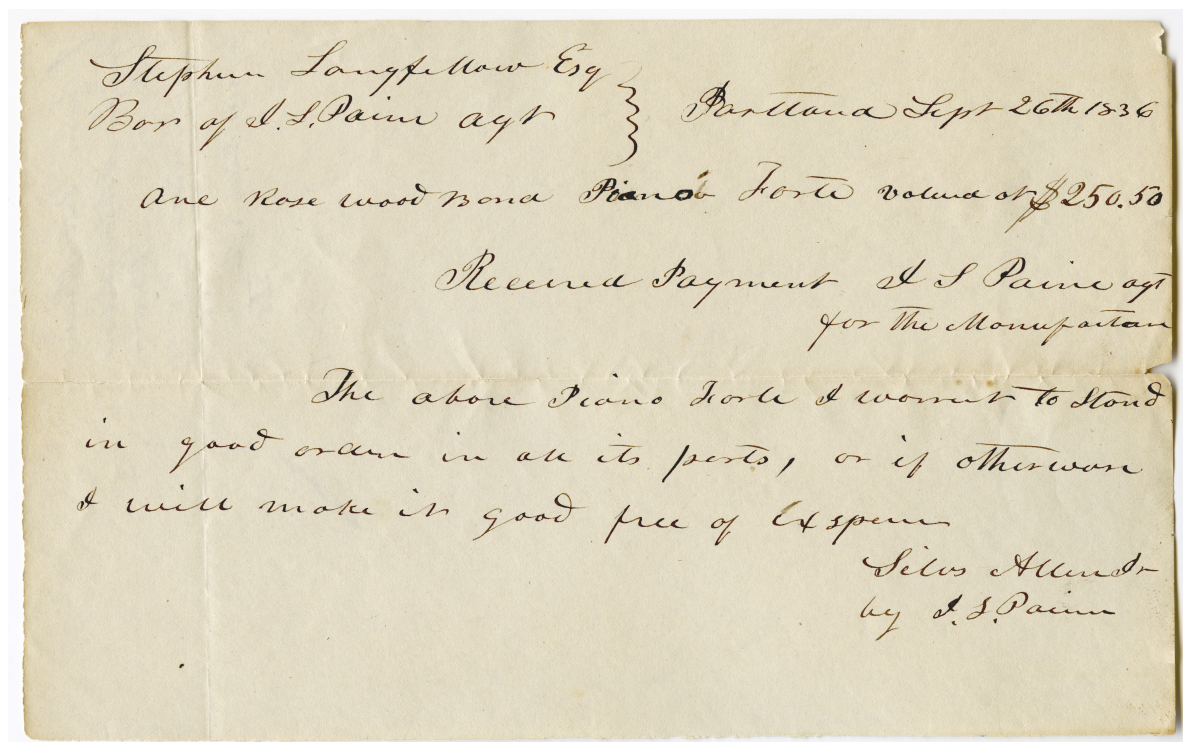 Stephen Longfellow Esq
Bor of I. S. Paine agt
Portland Sept 26th 1836
One Rose wood Band Piano Forte valued at $250.50
Received Payment I S Paine agt
for the Manufactan
The above Piano Forte I warrent to Stand
in good order in all its parts, or if otherware
I will make it good free of Expenn
Silas Allen Jr
by I. S. Paine